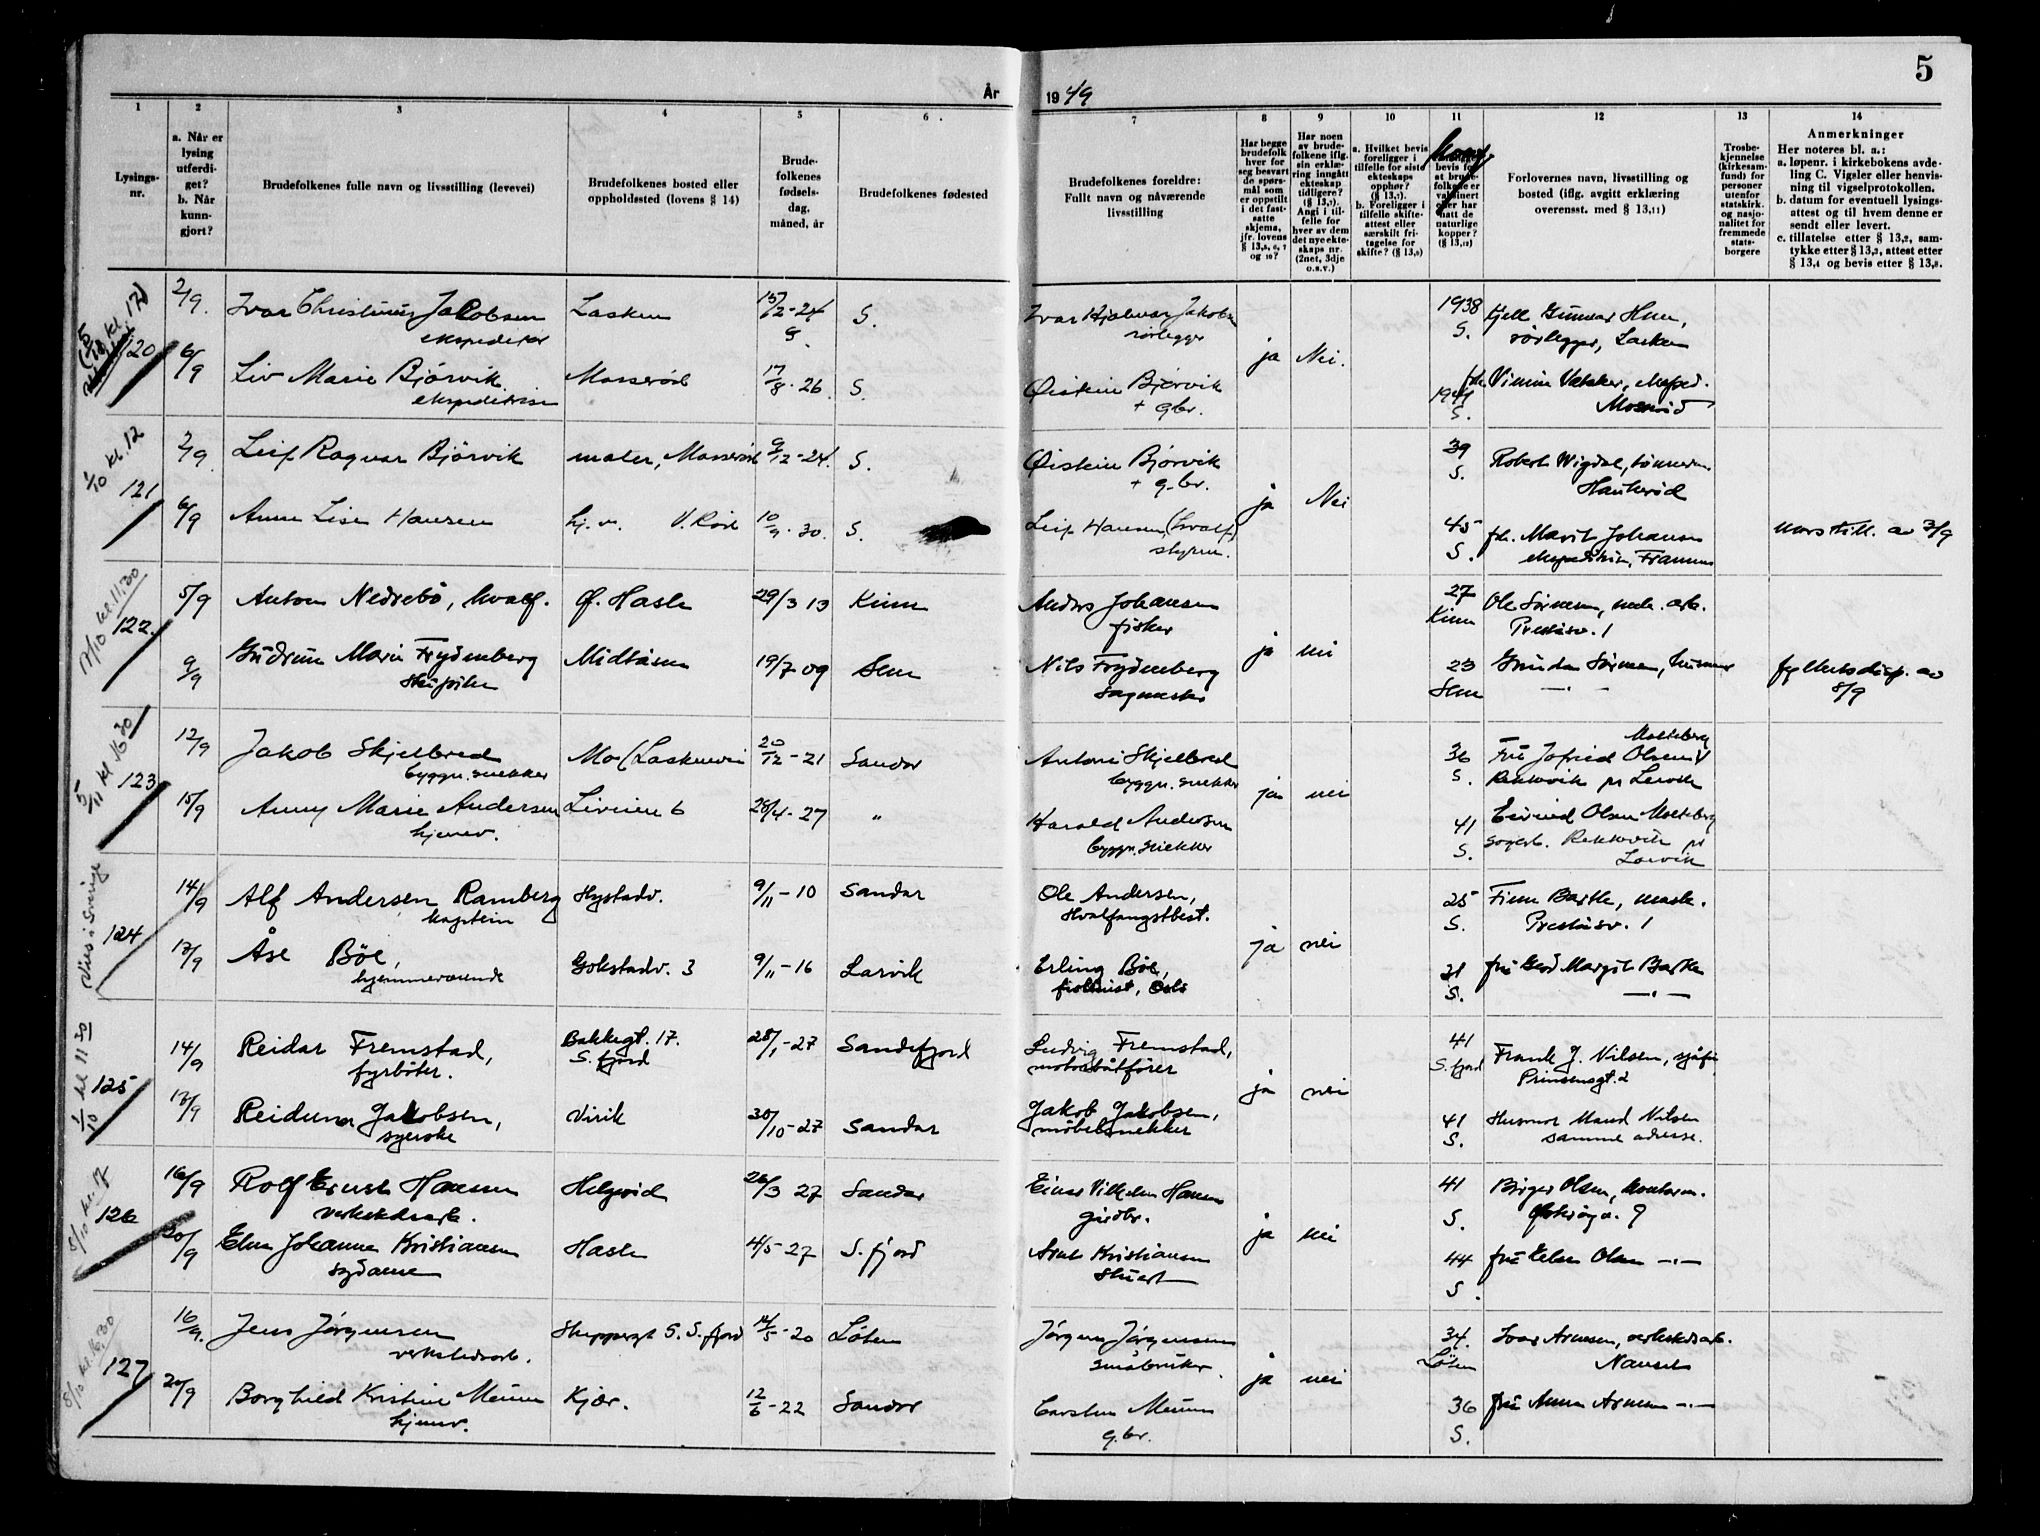 5
År
19 49
1
2
3
4
5
6
7
8
9
10
11
12
13
14
Lysings-
nr.
a. Når er
lysing
utferdi-
get?
b. Når
kunn-
gjort?
Brudefolkenes fulle navn og livsstilling (levevei)
Brudefolkenes bosted eller
oppholdssted (lovens § 14)
Brude-
folkenes
fødsels-
dag,
måned, år
Brudefolkenes fødested
Brudefolkenes foreldre:
Fullt navn og nåværende
livsstilling
Har begge
brudefolk
hver for
seg besvart
de spørs-
mål som
er oppstilt
i det fast-
satte
skjema,
jfr. lovens
Har noen
av brude-
folkene iflg.
sin erklæ-
ring inngått
ekteskap
tidligere?
Angi i til-
felle for
hver av dem
det nye ekte-
skaps nr.
(2net, 3dje
o.s.v.)
a. Hvilket bevis
foreligger i
tilfelle for siste
ekteskaps
opphør?
b. Foreligger i
tilfelle skifte-
attest eller
særskilt fri-
tagelse for
bevis for
at brude-
folkene er
vaksinert
eller har
hatt de
naturlige
kopper?
Forlovernes navn, livsstilling og
bosted (iflg. avgitt erklæring
overensst. med § 13,11)
Trosbe-
kjennelse
(kirkesam-
fund) for
personer
utenfor
statskirk.
og nasjo-
nalitet for
fremmede
stats-
borgere
Anmerkninger
Her noteres bl. a.:
a. løpenr. i kirkebokens avde-
ling C. Vigsler eller henvis-
ning til vigselprotokollen.
b. datum for eventuell lysings-
attest og til hvem denne er
sendt eller levert.
c. tillatelse etter § 13,2, sam-
tykke etter § 13,3, attest etter
§ 13,4 og bevis etter § 13,8.
120
2/9. Ivar Jacobsen
ekspeditør
15/2-24 S.
Ivar Hjalmar Jakobsen
rørlegger
1938
S.
Kjell Gunnar
rørlegger,
ja Nei.
6/9 Liv Marie Bjørvik
Mosserød 17/8-26 S.
Øistein Bjørvik
+ gbr.
S.
Mosserød
1/10 kl. 12
121
2/9 Leif Ragnar Bjørvik maler, Mosserød 9/12-24. S.
Øistein Bjørvik
+ g.br.
39
S.
Robert Wigdal,
Haukerød
ja Nei
6/9 Anne Lise Hansen hj.v. V. Rød 10/9-30. S.
Leif Hansen (hvalf)
45
S.
frk. Marit Johansen
mors till. av 3/9
17/10 kl. 11.30
122
5/9 Anton Nedrebø, hvalf. Ø. Hasle 29/3 13 Kinn
Anders Johansen
fisker
27
Kinn
Preståsv. 1
ja nei
9/9 Gudrun Marie Frydenberg Midtåsen 19/7 09 Sem
Nils Frydenberg
sagmester
23
Sem
fylkesdisp. av
8/9
5/11 kl 16 30
123
12/9 Jakob Skjelbred
byggn. snekker
Mo 20/12-21 Sandar
Antoni Skjelbred
byggn. snekker
36
S.
Molteberg
Fru Jofried Olsen
Rekkevik pr Larvik
ja nei
15/9 Anny Marie Andersen
hjemmev.
Liveien 6 28/4-27 "
Harald Andersen
byggn. snekker
41
S.
Eivind Olsen Molteberg
Rekkevik pr
Larvik
Vies i Sverige
124
14/9 Alf Andersen Ramberg
kaptein
Hystadv. 9/11-10 Sandar
Ole Andersen,
Hvalfangstbest.
25
S.
Finn Barthe, mask.
Preståsv. 1
ja nei
17/9 Åse Böe,
hjemmeværende
Gokstadv. 3 9/11-16 Larvik
Erling Böe,
fiolinist, Oslo
31
S.
1/10 kl 11 30
125
14/9 Reidar Fremstad,
fyrböter.
Bakkegt. 17.
S. fjord
28/1-27 Sandefjord
Ludvig Fremstad,
motorbåtförer
41
S. fjord
Frank J. Nilsen, sjåfør
Prinsensgt. 2
ja nei
17/9 Reidunn Jakobsen,
syerske
Virik 30/10-27 Sandar
Jakob Jakobsen,
möbelsnekker
41
S.
Husmor Maud Nilsen
samme adresse.
8/10 kl. 17
126
16/9 Rolf Ernst Hansen
verkstedsarb.
Helgerød 26/3 27 Sandar
Einar Vilhelm Hansen
gårdbr.
41
S.
Birger Olsen, kontorm.
ja nei
20/9 Else Johanne Kristiansen
sydame
Hasle 4/5-27 S. fjord
Arnt Kristiansen
44
S.
fru Olsen -"-
8/10 kl. 16.30
127
16/9. Jens Jørgensen
verkstedsarb.
Skippergt 5. S. fjord 14/5-20 Løten
Jørgen Jørgensen
småbruker
34.
Løten
Ivar Arnesen, verkstedsarb.
ja nei
20/9 Borghild Kristine
hjemv.
Kjær. 12/6-22 Sandar
Carsten
g.br.
36
S.
fru Anna Arnesen -"-